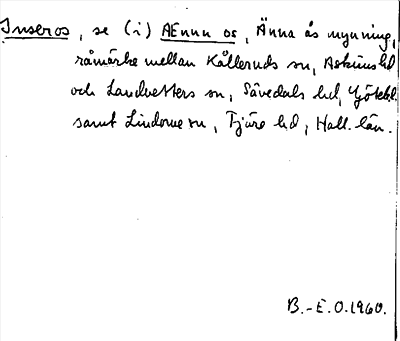 Inseros, se (i) AEnnu os, Änna ås mynning,
råmärke mellan Kållereds sn, Askims hd
och Landvetters sn, Sävedals hd, Götebl.
samt Lindome sn, Fjäre hd, Hall. län.
B.-E.O.1960.